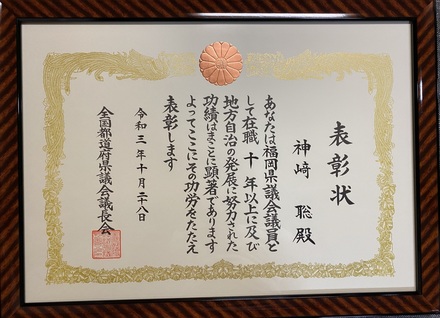 表彰状
神﨑 聡 殿
あなたは福岡県議会議員と
して在職 十 年以上に及び
地方自治の発展に努力された
功績はまことに顕著であります
よってここにその功労をたたえ
表彰します
令和三年十月二十八日
全国都道府県議会議長会